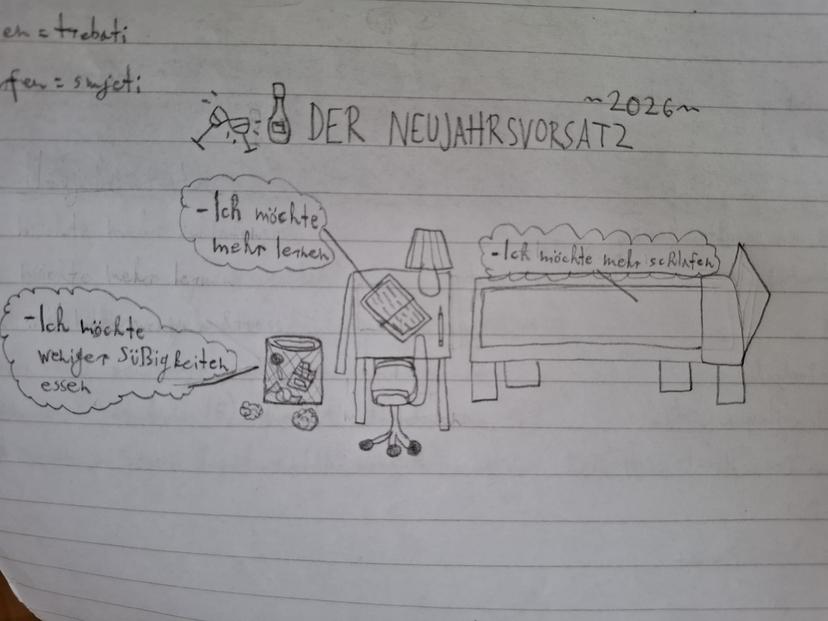 en = trebati
fen = smjeti
~2026~
DER NEUJAHRSVORSATZ
-Ich möchte
mehr lernen
-Ich möchte mehr schlafen
-Ich möchte
weniger Süßigkeiten
essen